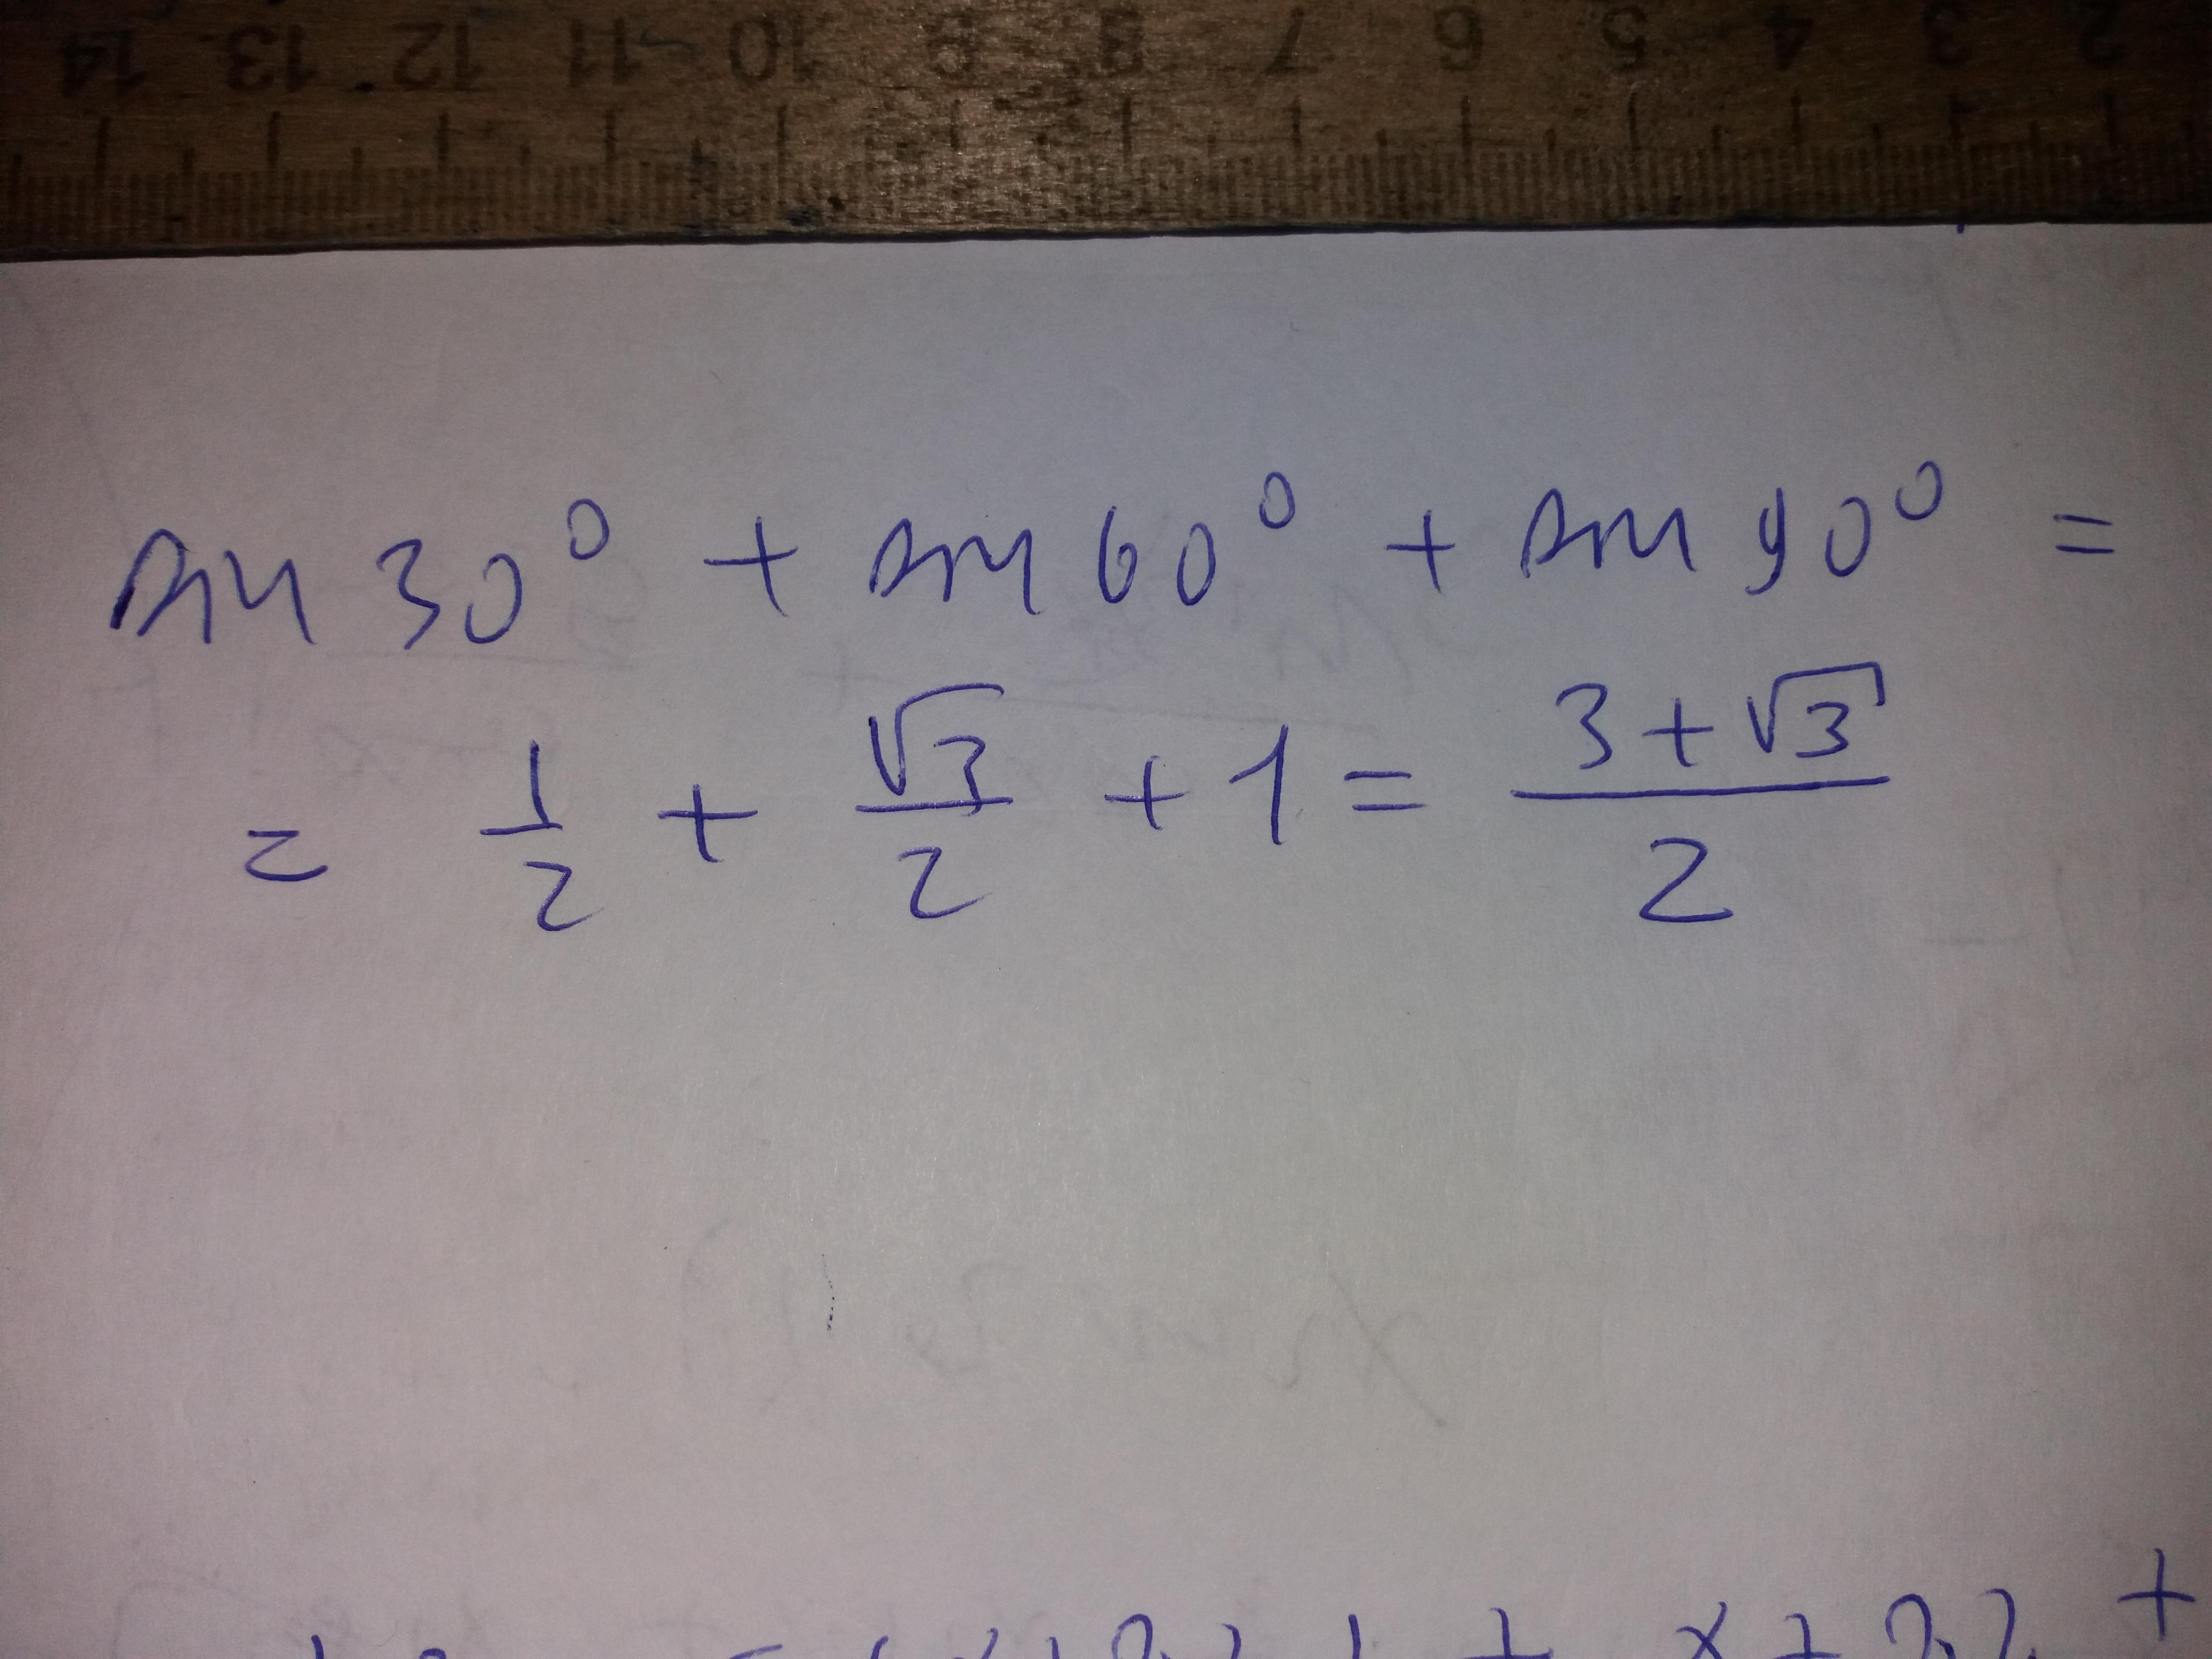 14 13 12 11 10 9 8 7 6 5 4 3 2
sin 30° + sin 60° + sin 90° =
= 1/2 + √3/2 + 1 = (3 + √3)/2